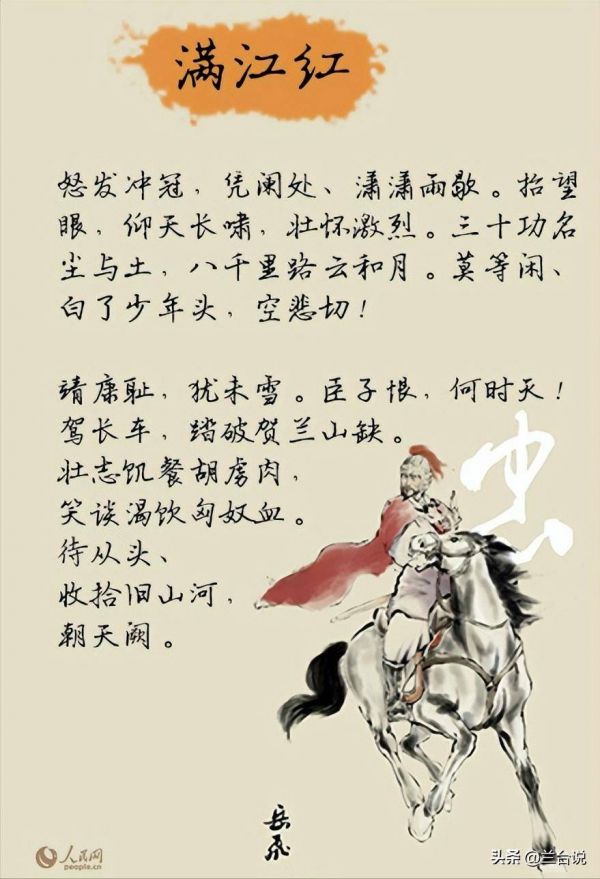 满江红
怒发冲冠，凭阑处、潇潇雨歇。抬望
眼，仰天长啸，壮怀激烈。三十功名
尘与土，八千里路云和月。莫等闲、
白了少年头，空悲切！
靖康耻，犹未雪。臣子恨，何时灭！
驾长车，踏破贺兰山缺。
壮志饥餐胡虏肉，
笑谈渴饮匈奴血。
待从头、
收拾旧山河，
朝天阙。
忠
岳飞
人民网
people.cn
头条 @兰台说